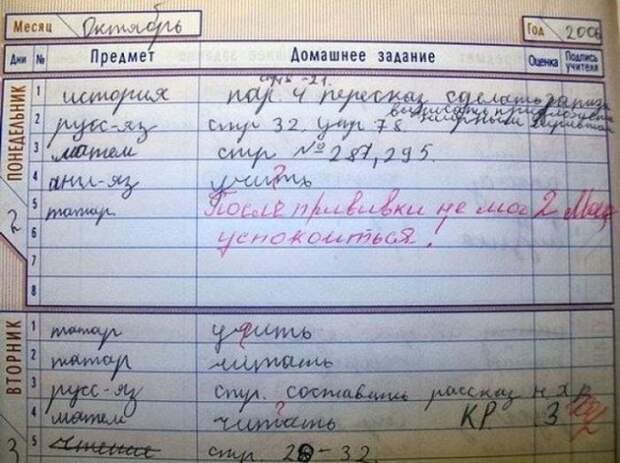 Месяц Октябрь Год 2006
Дни № Предмет Домашнее задание Оценка Подпись учителя
ПОНЕДЕЛЬНИК 2
стр -21.
1 история пар. 4 пересказ сделать
2 русс-яз стр 32. упр 78
3 матем стр № 287, 295.
4 анг-яз учить ?
5 татар После прививки не мог 2
6 успокоиться!
7
8
ВТОРНИК 3
1 татар учить
2 татар читать
3 русс-яз стр. составить рассказ
4 матем читать ? КР. 3
5 чтение стр. 28-32